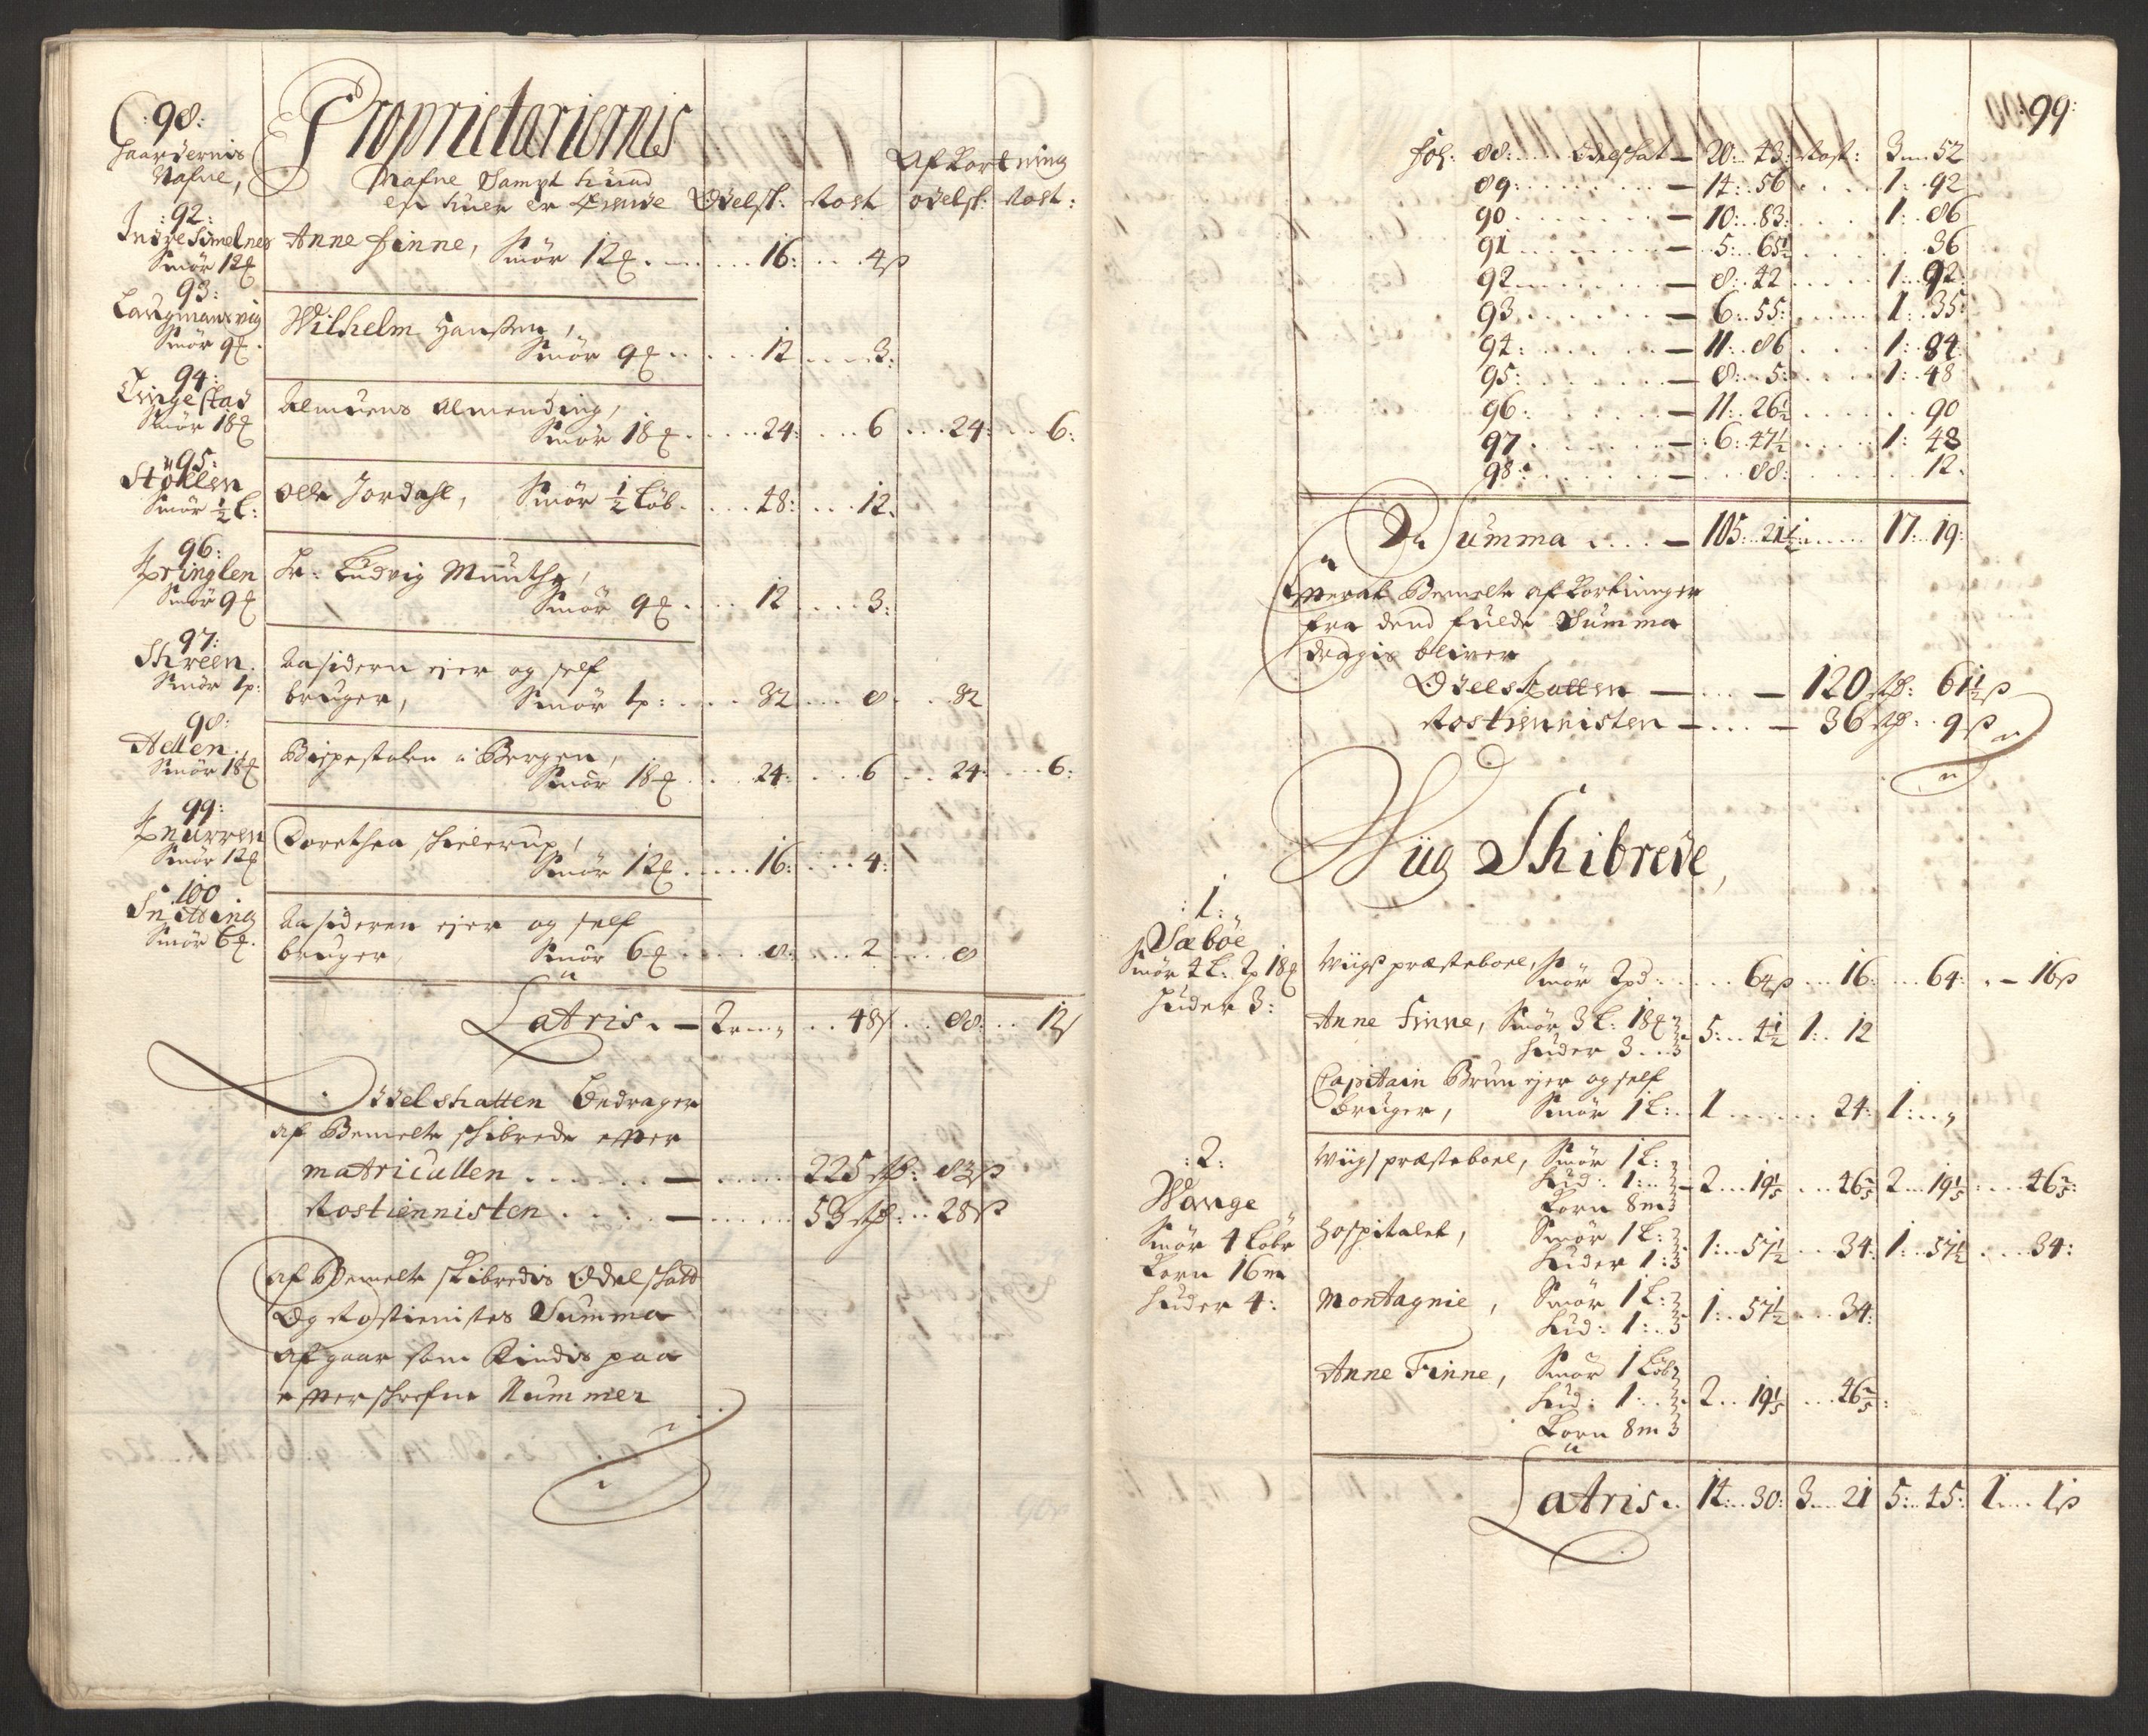 :98:
Gaardernis
Nafne,
Proprietariernis
Nafne Sampt hvad
en huer er Eiende
Odelsk: Rost
Afkortning
odelsk: Rost:
:92:
Indre Simelnes
Smör 12
Anne Finne, Smör 12 .... 16: ... 4 β
93:
Langmansvig
Smör 9
Wilhelm Hanßen,
Smör 9 .... 12 .... 3:
94:
Tingestad
Smör 18
Almuens Almending,
Smör 18 .... 24: ... 6 ... 24: ... 6:
95:
Stöllen
Smör ½ L:
Olle Jordahl, Smör ½ Löb .... 48: ... 12.
96:
Kringlen
Smör 9
Hr: Ludvig Muuthe,
Smör 9 .... 12 .... 3:
97:
Shreen
Smör 1p:
Aasidern ejer og self
bruger, Smör 1p: .... 32 ... 8 .. 32
98:
Aellen
Smör 18
Bispestolen i Bergen,
Smör 18 ... 24: ... 6 .. 24: ... 6:
99:
Knurren
Smör 12
Dorethea Schelerup,
Smör 12 ..... 16: ... 4:
100
Snitting
Smör 6
Aasideren ejer og self
bruger, Smör 6 ..... 8: ... 2 .... 8
Latris. — 2 .. 48 .. 88: .. 12
Odelskatten Bedrager
af Bemelte skibrede efter
matricullen ...... — ..... 225 rd: 83 β
Rostiennisten ..... — ..... 53 rd: .. 28 β
af Bemelte skibredis Odelskatt
Og Rostienistes Summa
afgaar som findis paa
efterskrefne Nummer
99:
Fol: 88: ... Odelskat — 20: 43: Rost: 3 .. 52
89: ....... — 14: 56 .... 1: 92
90 ....... — 10: 83: .... 1: 86
91 ....... — 5: 65½ .... 36
92 ....... — 8: 42 .... 1: 92:
93 ....... — 6: 55: .... 1: 35:
94: ...... — 11: 86 .... 1: 84
95: ...... — 8: 5: .... 1: 48
96: ...... — 11: 26½ .... 90
97 ....... — 6: 47½ .... 1: 48
98: ...... — .. 88: .... 12.
Er Summa .... — 105: 21½ .... 17: 19:
Efterat Bemelte afkortninger
fra dend fulde Summa
dragis bliver
Odelskatten — ... — 120 rd: 61½ β
Rostiennisten — ... — 36 rd: 9 β
Wiig Skibrede,
:1:
Sæböe
Smör 4 L: 2p 18
Huder 3:
Wiigs præsteboel,
Smör 2pd ..... 64 β ... 16 ... 64: .. — 16 β
Anne Finne, Smör 3 L: 18
Huder 3 ... 5: .. 4½ 1: .. 12
Capitain Brun ejer og self
bruger, Smör 1 L: .. 1 ...... 24: 1: ..
:2:
Wange
Smör 4 Löbe
Korn 16 m
Huder 4:
Wiigs præsteboel, Smör 1 L:
Hud: 1:
Korn 8 m — 2 .. 19⅕ .. 46⅖ 2 .. 19⅕ ... 46⅖:
Hospitalet, Smör 1 L:
Huder 1: 1: .. 57½ .. 34: 1: .. 57½ ... 34:
Montagnie, Smör 1 L:
Hud: 1: 1: .. 57½ ... 34:
Anne Finne, Smör 1 Löb
Hud: 1
Korn 8 m 2 .. 19⅕ ... 46⅖:
Latris. 14: .. 30: 3 ... 21 5: .. 45: 1 ... 1 β